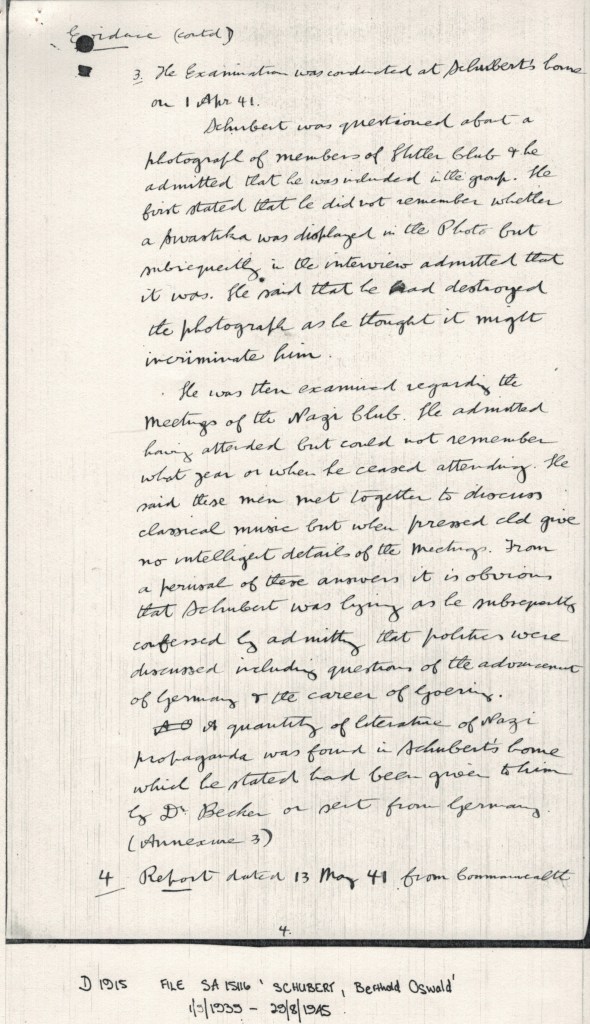 Evidence (contd)
3. The Examination was conducted at Schubert's home
on 1 Apr 41.
Schubert was questioned about a
photograph of members of Hitler Club & he
admitted that he was included in the group. He
first stated that he did not remember whether
a Swastika was displayed in the Photo but
subsequently in the interview admitted that
it was. He said that he had destroyed
the photograph as he thought it might
incriminate him.
He was then examined regarding the
Meetings of the Nazi Club. He admitted
having attended but could not remember
what year or when he ceased attending. He
said these men met together to discuss
classical music but when pressed cld give
no intelligent details of the meetings. From
a perusal of these answers it is obvious
that Schubert was lying as he subsequently
confessed by admitting that politics were
discussed including questions of the advancement
of Germany & the career of Goering.
A quantity of literature of Nazi
propaganda was found in Schubert's home
which he stated had been given to him
by Dr Becker or sent from Germany.
(Annexure 3)
4 Report dated 13 May 41 from Commonwealth
4.
D 1915 FILE SA 15116 'SCHUBERT, Berthold Oswald'
1/9/1939 - 29/8/1945